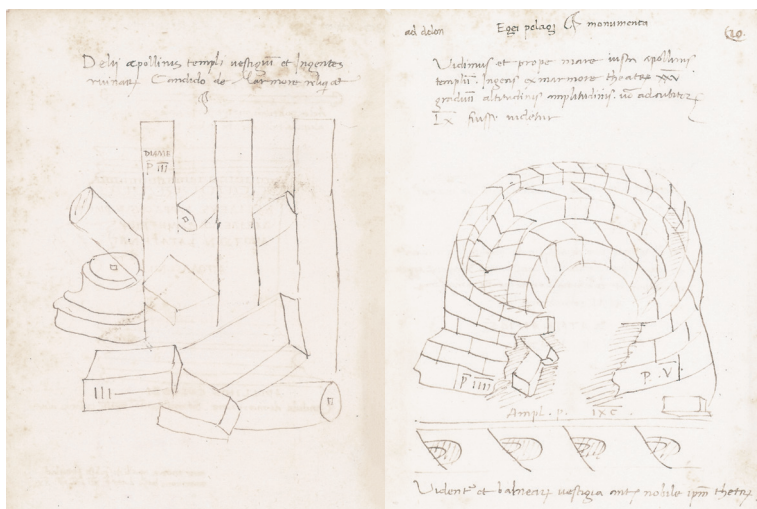 Delii apollinis templi uestigiū et Ingentes
ruinae Candido de Marmore
DIAME
p̄ III
III
ad delon
Egei pelagi monumenta
20.
Vidimus et prope mare iusta apollinis
templū Ingens e marmore theatrū XXV
graduū altitudinis amplitudinis
IX fuisse uidetur
p̄ IIII
P. V
Ampl. p. IXC
Videntr̄ et balneary uestigia ante nobile ip̄m